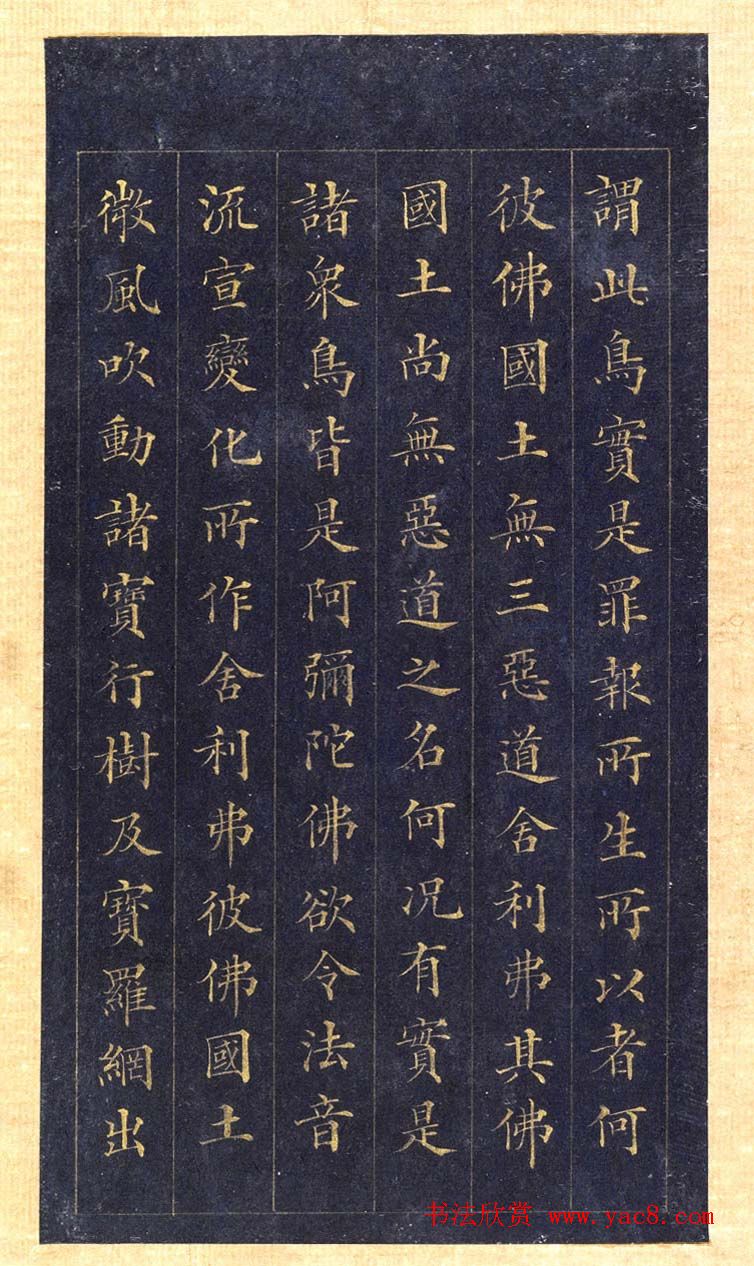 謂此鳥實是罪報所生所以者何
彼佛國土無三惡道舍利弗其佛
國土尚無惡道之名何况有實是
諸衆鳥皆是阿彌陀佛欲令法音
流宣變化所作舍利弗彼佛國土
微風吹動諸寶行樹及寶羅網出
书法欣赏 www.yac8.com